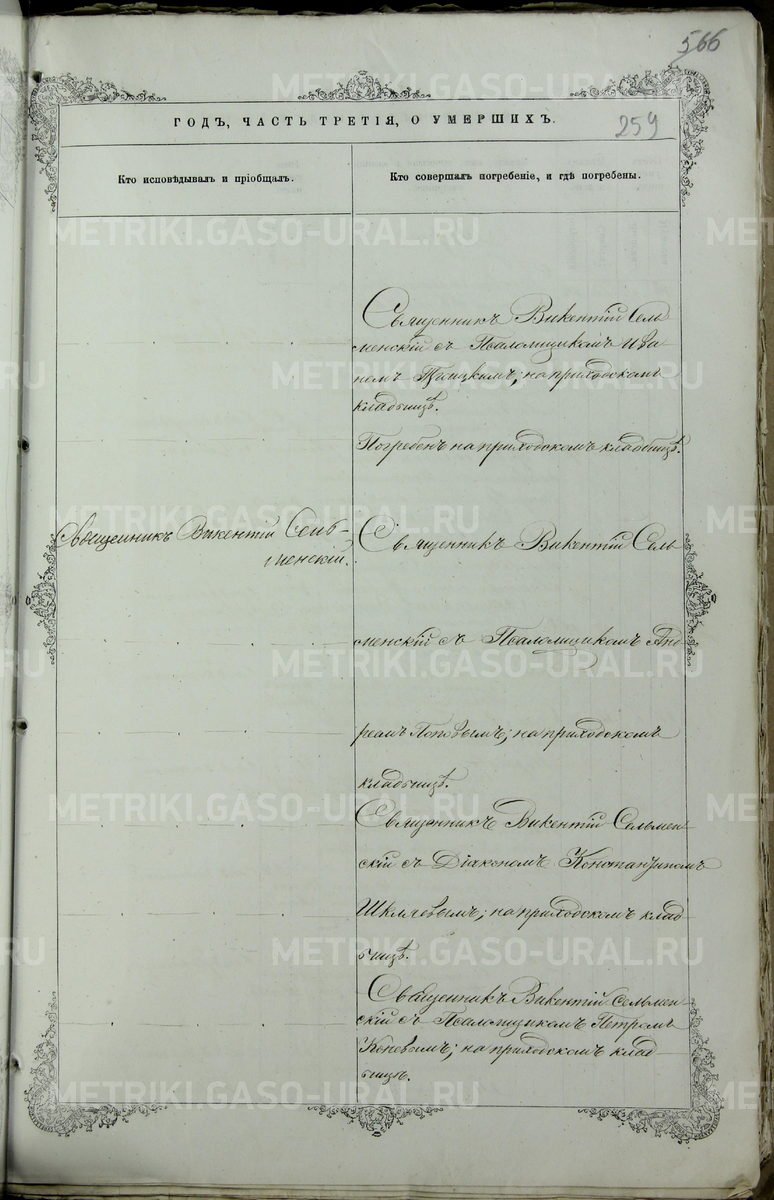 566
ГОДЪ, ЧАСТЬ ТРЕТІЯ, О УМЕРШИХЪ.
259
Кто исповѣдывалъ и пріобщалъ.
Кто совершалъ погребеніе, и гдѣ погребены.
Священникъ Викентій Сель
менскій съ Псаломщикомъ Ива
номъ; на приходскомъ
кладбищѣ.
Погребенъ на приходскомъ кладбищѣ.
Священникъ Викентій Сель-
менскій.
Священникъ Викентій Сель
менскій съ Псаломщикомъ Анд-
реемъ Поповымъ; на приходскомъ
кладбищѣ.
Священникъ Викентій Сельмен
скій съ Діакономъ Константиномъ
Шкляевымъ; на приходскомъ клад
бищѣ.
Священникъ Викентій Сельмен
скій съ Псаломщикомъ Петромъ
Коневымъ; на приходскомъ клад-
бищѣ.
METRIKI.GASO-URAL.RU